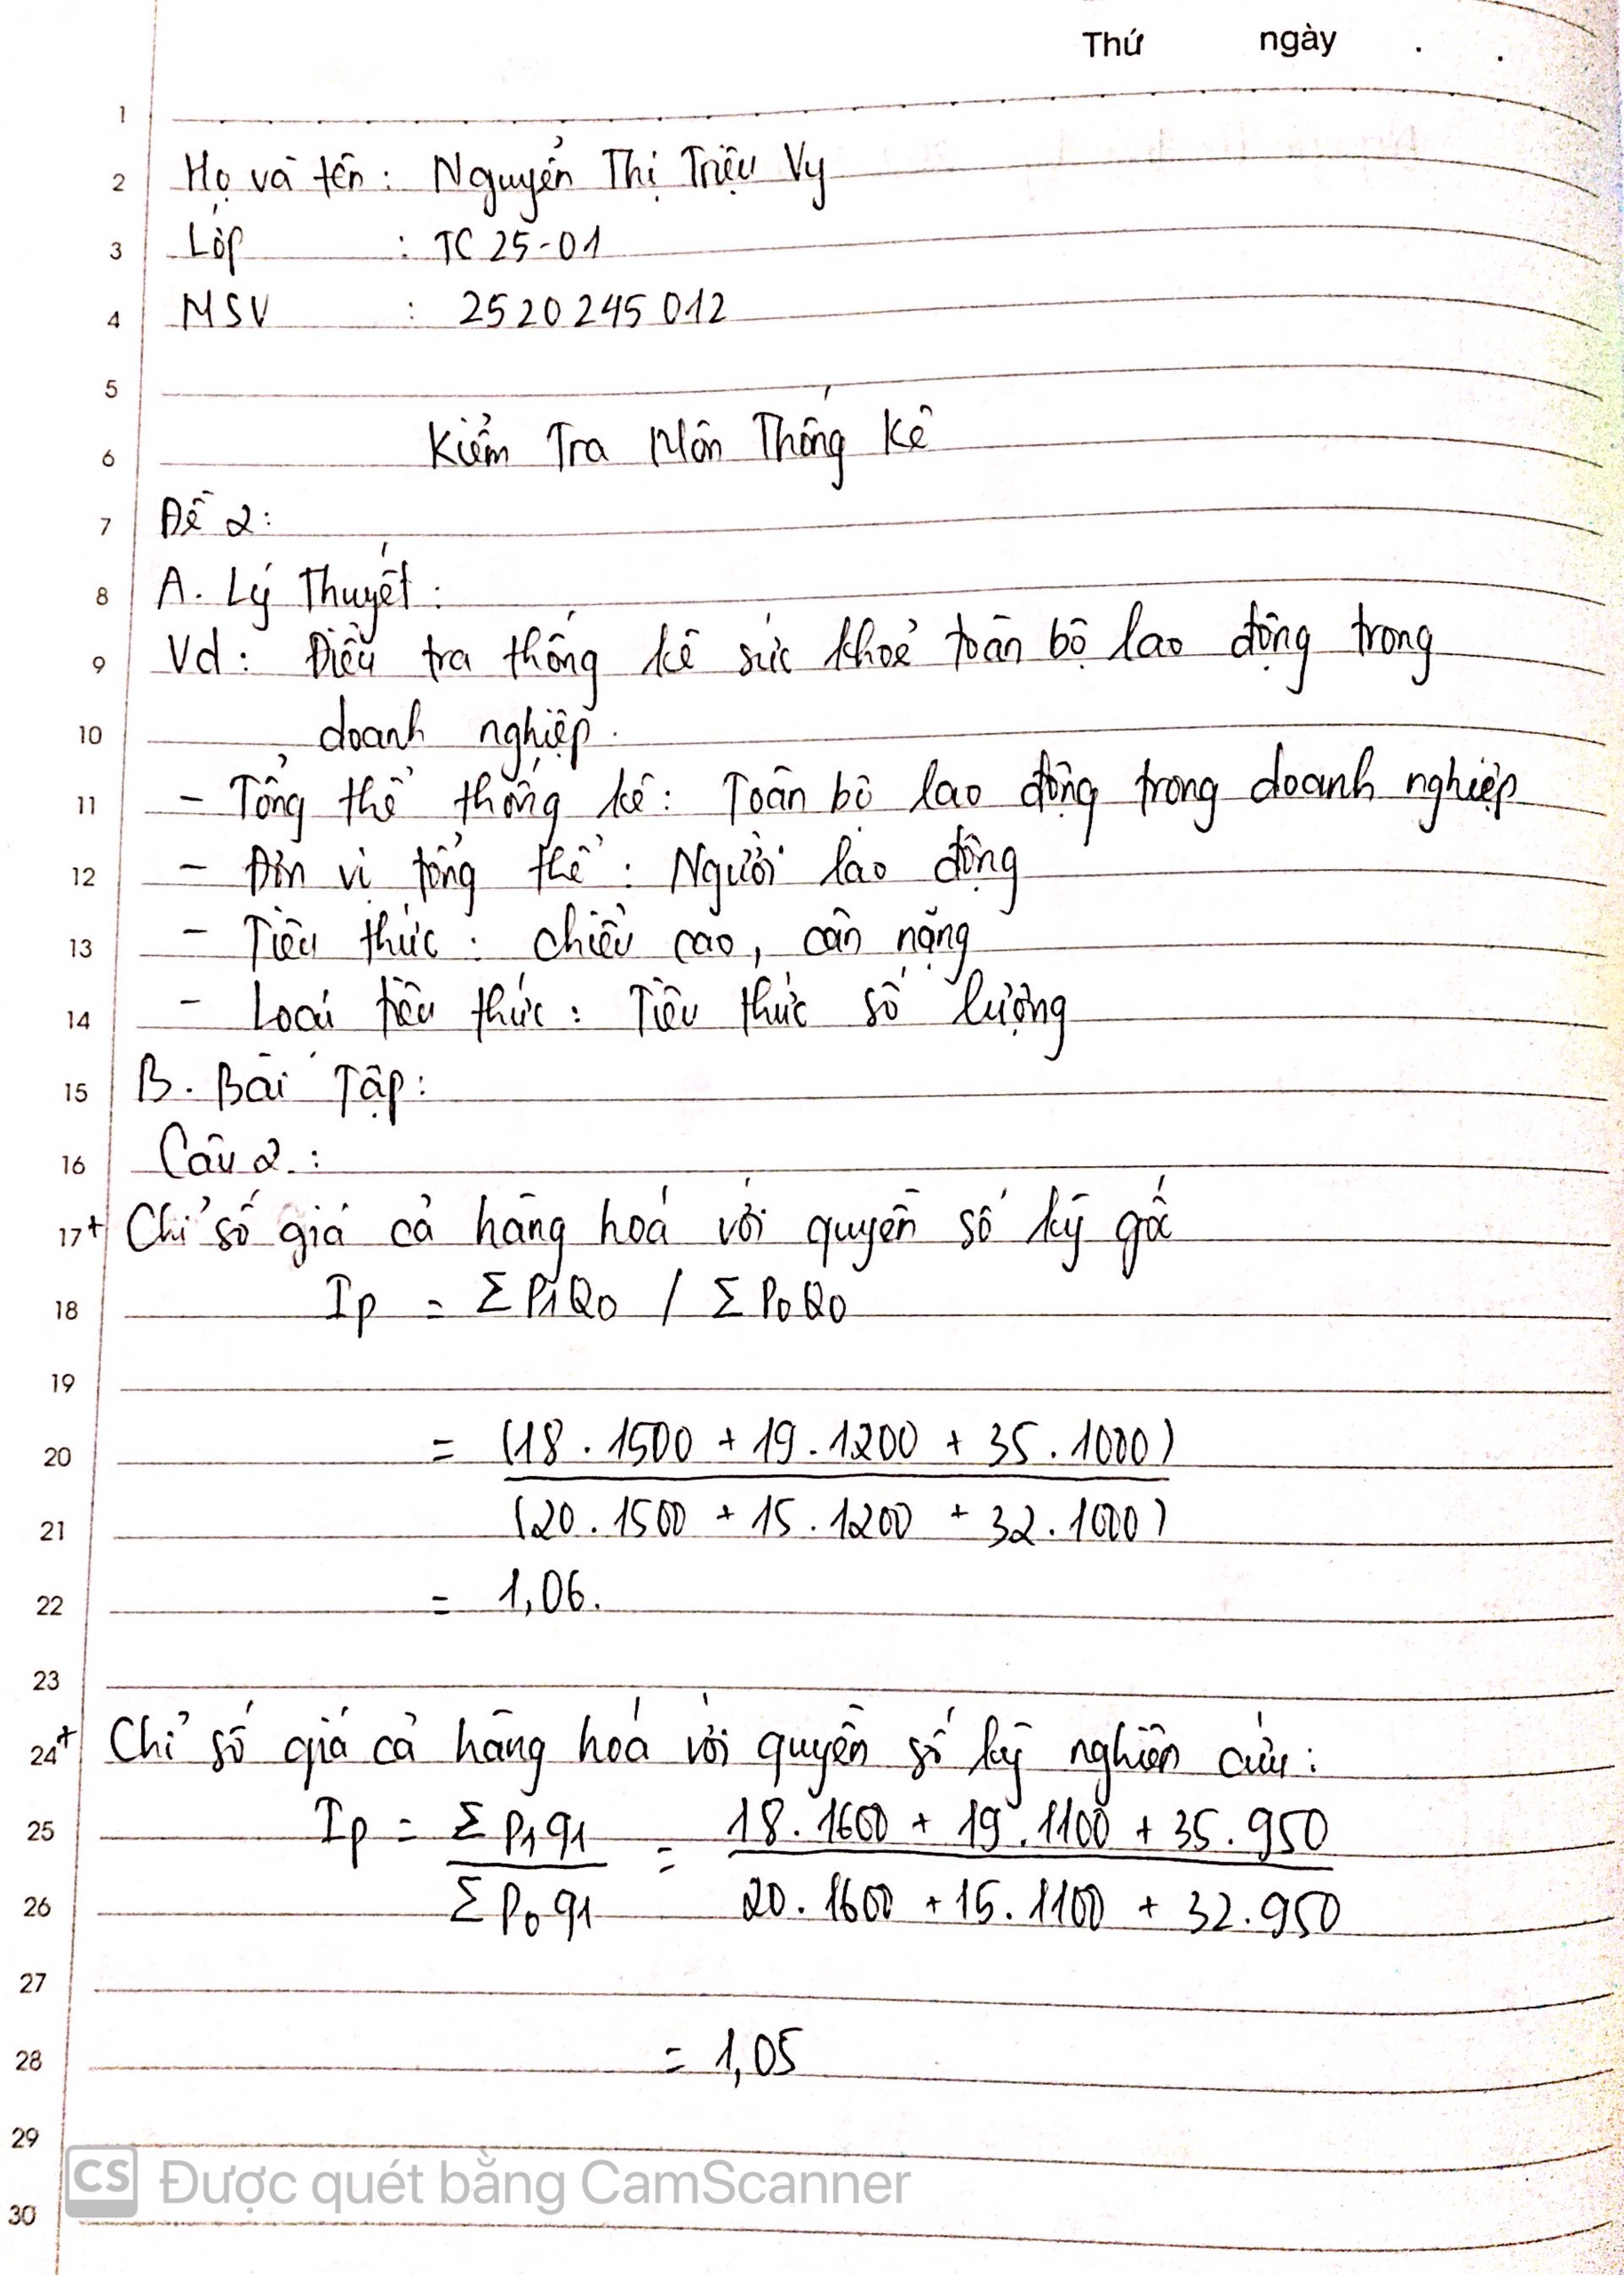 Thứ ngày . .
1
2 Họ và tên : Nguyễn Thị Triệu Vy
3 Lớp : TC 25-01
4 MSV : 2520245012
5
6 Kiểm Tra Môn Thống Kê
7 Đề 2:
8 A. Lý Thuyết :
9 Vd : Điều tra thống kê sức khoẻ toàn bộ lao động trong
10 doanh nghiệp.
11 - Tổng thể thống kê : Toàn bộ lao động trong doanh nghiệp
12 - Đơn vị tổng thể : Người lao động
13 - Tiêu thức : chiều cao, cân nặng
14 - Loại tiêu thức : Tiêu thức số lượng
15 B. Bài Tập :
16 Câu 2. :
17 + Chỉ số giá cả hàng hoá với quyền số kỳ gốc
18 Ip = Σ P1Q0 / Σ P0Q0
19
20 = (18 . 1500 + 19 . 1200 + 35 . 1000)
21 (20 . 1500 + 15 . 1200 + 32 . 1000)
22 = 1,06.
23
24 + Chỉ số giá cả hàng hoá với quyền số kỳ nghiên cứu :
25 Ip = Σ P1q1 = 18 . 1600 + 19 . 1100 + 35 . 950
26 Σ P0q1 20 . 1600 + 15 . 1100 + 32 . 950
27
28 = 1,05
29
CS Được quét bằng CamScanner
30